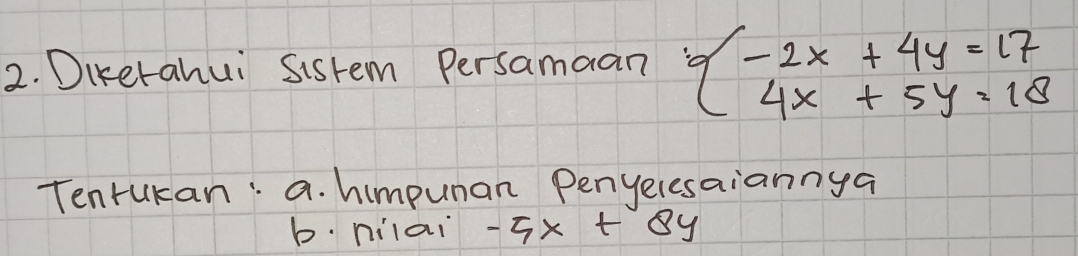 2. Diketahui Sistem Persamaan : { -2x + 4y = 17
4x + 5y = 18
Tentukan : a. himpunan Penyelesaiannya
b. nilai -5x + 8y